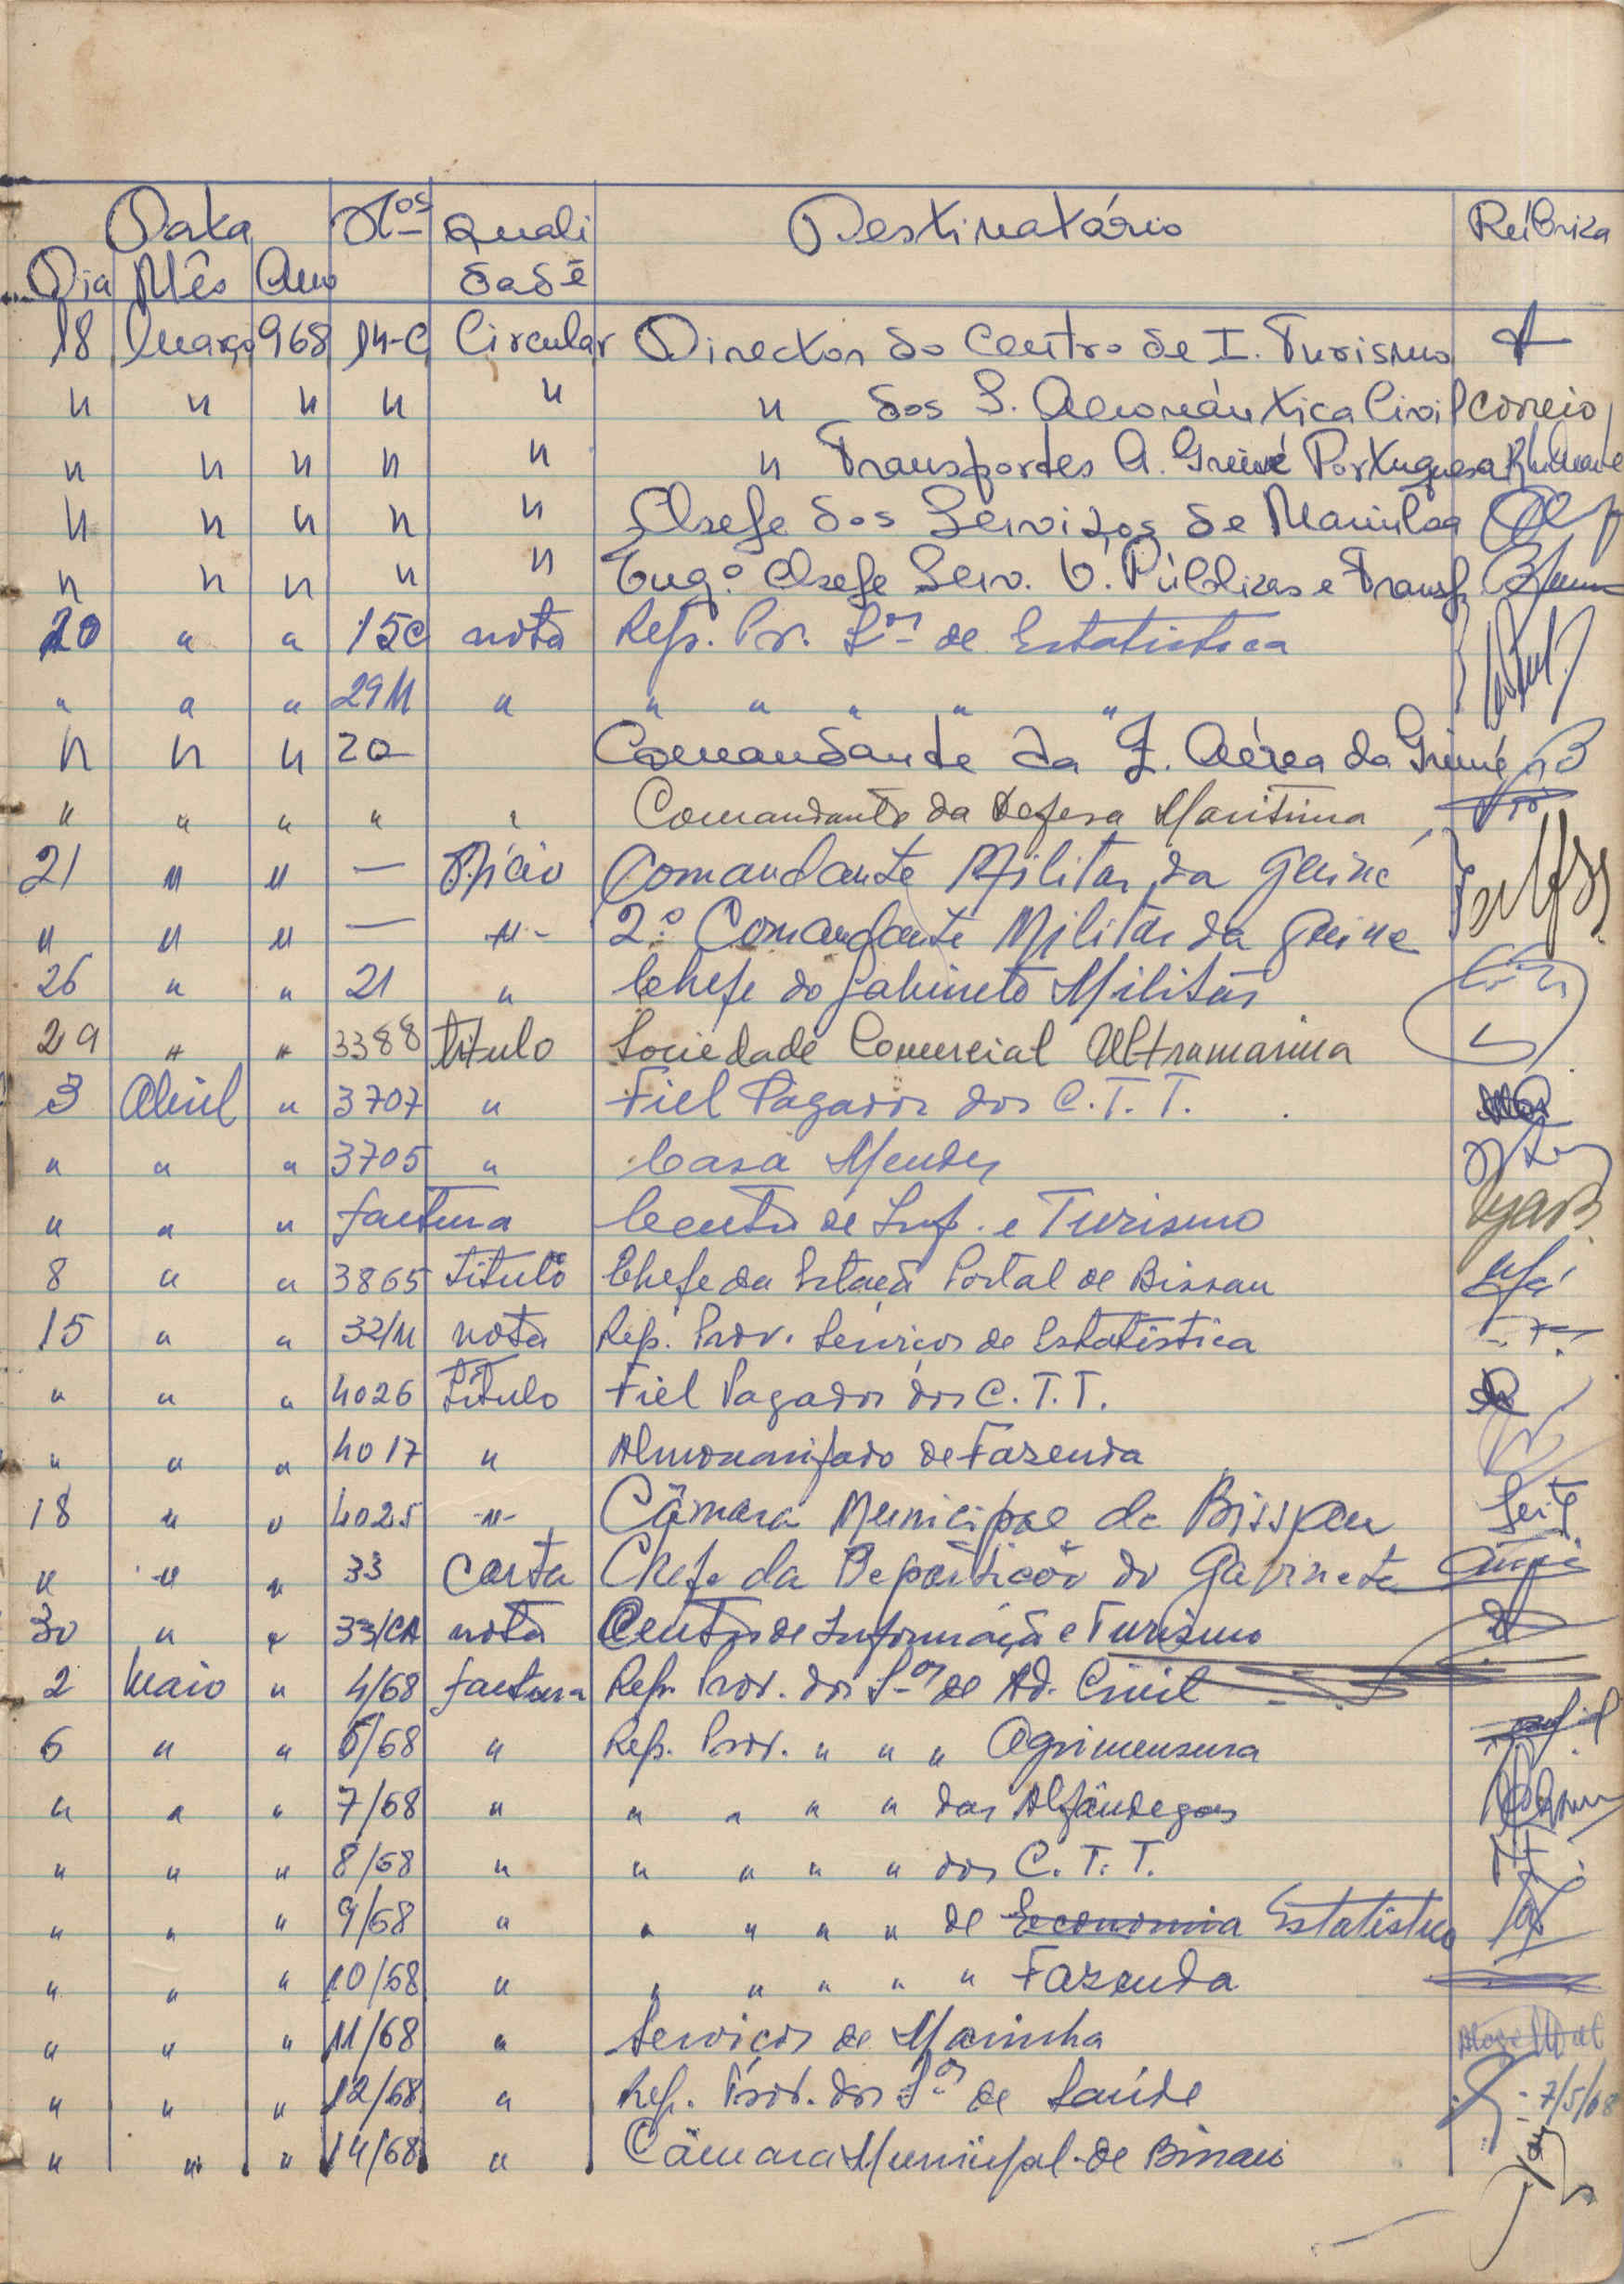 Data Nos Quali Destinatário Rúbrica
Dia Mês Ano dade
18 Março 968 14-C Circular Director do Centro de I. Turismo
" " " " " " dos S. Aeronáutica Civil Correio
" " " " " " Transportes A. Guiné Portuguesa
" " " " " Chefe dos Serviços de Marinha
" " " " " Engº. Chefe Serv. O. Públicas e Transp.
20 " " 15C nota Rep. Pr. Sos de Estatística
" " " 29M " " " " " "
" " " 20 Comandante da Z. Aérea da Guiné
" " " " " Comandante da Defesa Maritima
21 " " — Ofício Comandante Militar da Guiné
" " " — -"- 2º Comandante Militar da Guiné
26 " " 21 " Chefe do Gabinete Militar
29 " " 3388 titulo Sociedade Comercial Ultramarina
3 Abril " 3707 " Fiel Pagador dos C.T.T.
" " " 3705 " Casa Mendes
" " " factura Centro de Inf. e Turismo
8 " " 3865 titulo Chefe da Estação Postal de Bissau
15 " " 32/M nota Rep. Prov. Serviços de Estatística
" " " 4026 Título Fiel Pagador dos C.T.T.
" " " 4017 " Almoxarifado de Fazenda
18 " " 4025 -"- Câmara Municipal de Bissau
" " " 33 Carta Chefe da Repartição do Gabinete
30 " " 33/CA nota Centro de Informação e Turismo
2 Maio " 4/68 factura Rep. Prov. dos Sos de Ad. Civil
6 " " 6/68 " Rep. Prov. " " " Agrimensura
" " " 7/68 " " " " " das Alfândegas
" " " 8/68 " " " " " dos C.T.T.
" " " 9/68 " " " " " de Economia Estatística
" " " 10/68 " " " " " " Fazenda
" " " 11/68 " Serviços de Marinha
" " " 12/68 " Rep. Prov. dos Sos de Saúde 7/5/68
" " " 14/68 " Câmara Municipal de Bissau